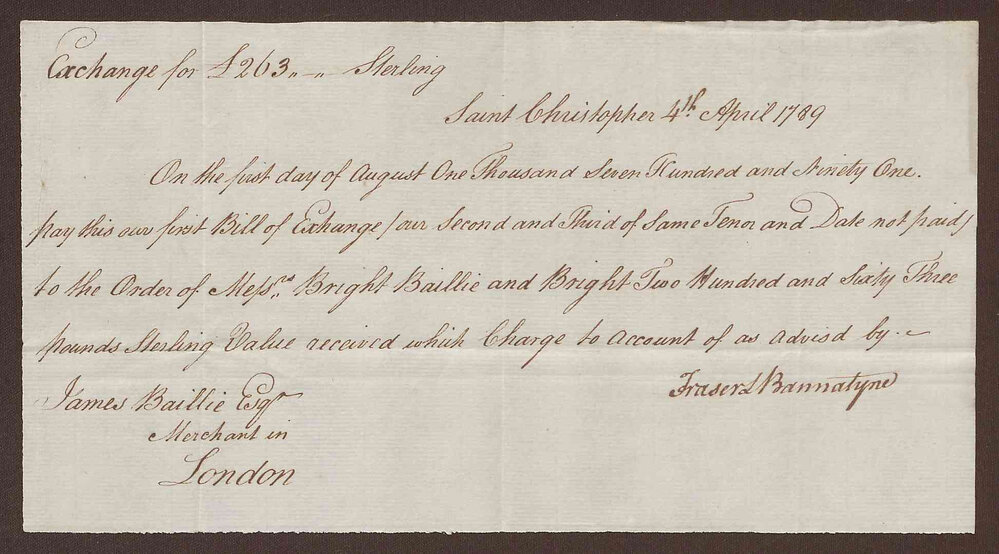 Exchange for £263,,–,, Sterling
Saint Christopher 4th April 1789
On the first day of August One Thousand Seven Hundred and Ninety One.
pay this our first Bill of Exchange /our Second and Third of Same Tenor and Date not paid/
to the Order of Messrs Bright Baillie and Bright Two Hundred and Sixty Three
pounds Sterling Value received which Charge to Account of as advisd by
James Baillie Esqr
Fraser & Bannatyne
Merchant in
London